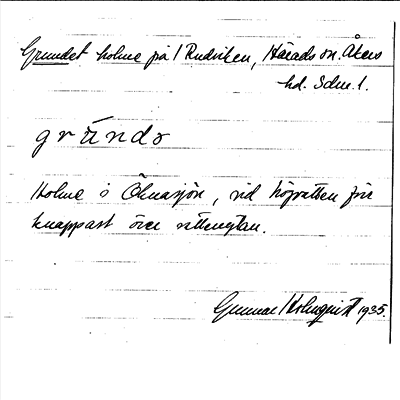 Grundet holme på 1 Rudviken, Härads sn. Åkers
hd. Sdm. l.
grùndə
Holme i Öknasjön, vid högvatten
knappast över vattenytan.
Gunnar Holmquist 1935.